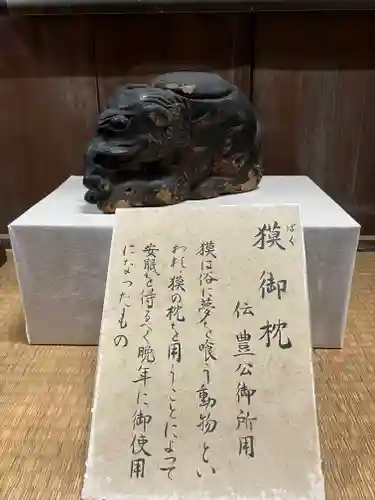 獏御枕
ばく
伝 豊公御所用
獏は俗に夢を喰う動物とい
われ、獏の枕を用うことによって
安眠を得るべく晩年に御使用
になったもの